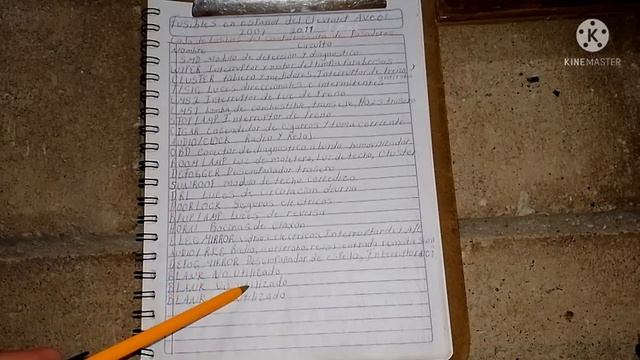 Fusibles en español del Chevrolet Aveo
2007 - 2011
Caja de fusibles del compartimento de Pasajeros
Nombre Circuito
SMD Modulo de detección y diagnostico
WIPER Interruptor y motor de limpia parabrisas
CLUSTER tablero y medidores, Interruptor de freno,
T/SIG Luces direccionales e intermitentes
MS2 Interruptor de luz de freno
MS1 bomba de combustible,
STOPLAMP Interruptor de freno
CIGAR Encendedor de cigarros y toma corriente
AUDIO/CLOCK Radio y Reloj
OBD Conector de diagnostico a bordo, inmovilizador
ROOM LAMP Luz de maletero, Luz de techo, Cluster
DEFOGGER Desempañador trasero
SUNROOF Modulo de techo corredizo
DRL Luces de circulacion diurna
DOORLOCK Seguros electricos
B/UP LAMP Luces de reversa
HORN Bocinas de claxon
ELEC MIRROR vidrios electricos, Interruptor del A/C
AUDIO/RKE Radio,
DEFOG MIRROR Desempañador de espejos, Interruptor A/C
BLANK No Utilizado
BLANK No Utilizado
BLANK Utilizado
KINEMASTER